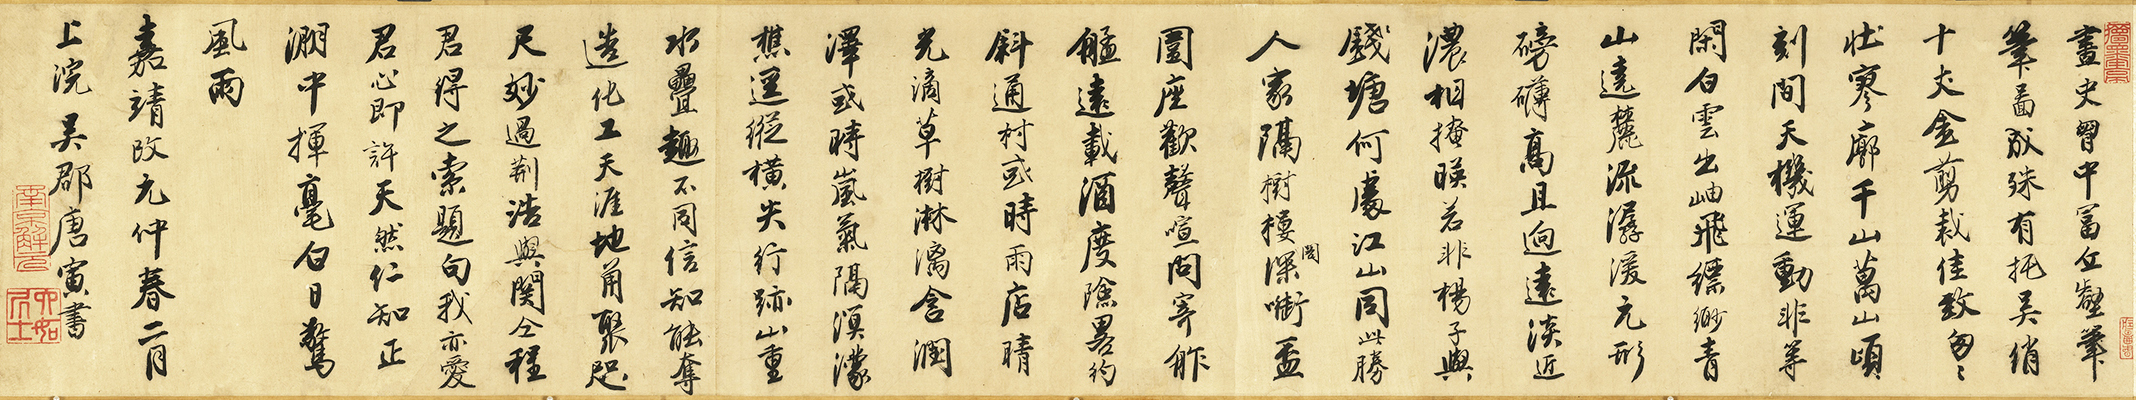 畫史胸中富丘壑筆
筆啚成殊有托吳綃
十丈金剪裁佳致匆匆
壯寥廓千山萬山頃
刻間天機運動非等
閑白雲出岫飛縹緲青
山遶麓流潺湲元形
磅礴高且迥遠淡近
濃相掩暎若非楊子與
錢塘何處江山同此勝
人家隔樹樓閣深啣盃
圍座歡聲喧問寄舴
艋遠載酒度陰畧彴
斜通村或時雨店晴
光滴草樹淋漓含潤
澤或時嵐氣隔溟濛
樵逕縱橫失行跡山重
水疊趣不同信知能奪
造化工天涯地角聚咫
尺妙過荊浩與関仝程
君得之索題句我亦愛
君心即許天然仁知正
淵中揮毫白日驚
風雨
嘉靖改元仲春二月
上浣吳郡唐寅書
南京解元
六如居士